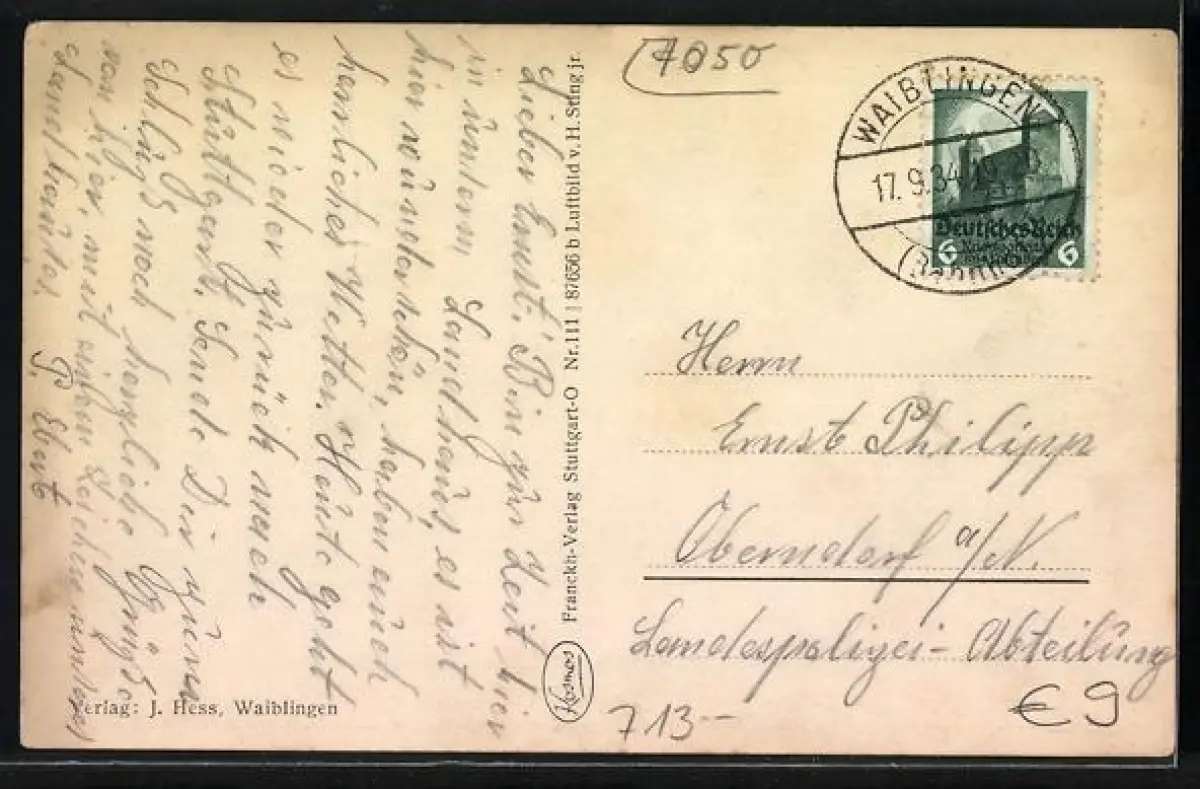 Lieber Ernst! Bin zur Zeit hier
in Landhaus, es ist
hier wunderschön, haben auch
herrliches Wetter. Heute geht
es wieder zurück nach
Stuttgart. Sende Dir zum
Schluß noch herzliche Grüße
von hier, mit
P. Ebert
Verlag: J. Hess, Waiblingen
Franckh-Verlag Stuttgart-O Nr. 111 | 87656 b Luftbild v. H. Sting jr.
Kosmos
7050
WAIBLINGEN
17.9.34
(Bahnhof)
Deutsches Reich
6 6
Herrn
Ernst Philipp
Oberndorf a/N.
Landespolizei-Abteilung
713-
€ 9